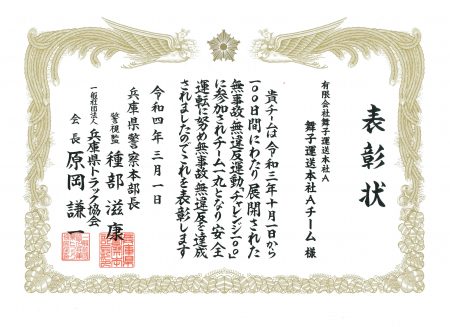 表彰状
有限会社舞子運送本社A
舞子運送本社Aチーム 様
貴チームは令和三年十月一日から
一〇〇日間にわたり展開された
無事故・無違反運動「チャレンジ一〇〇」
に参加されチーム一丸となり安全
運転に努め無事故・無違反を達成
されましたのでこれを表彰します
令和四年三月一日
兵庫県警察本部長
警視監 種部滋康
一般社団法人 兵庫県トラック協会
会長 原岡謙一